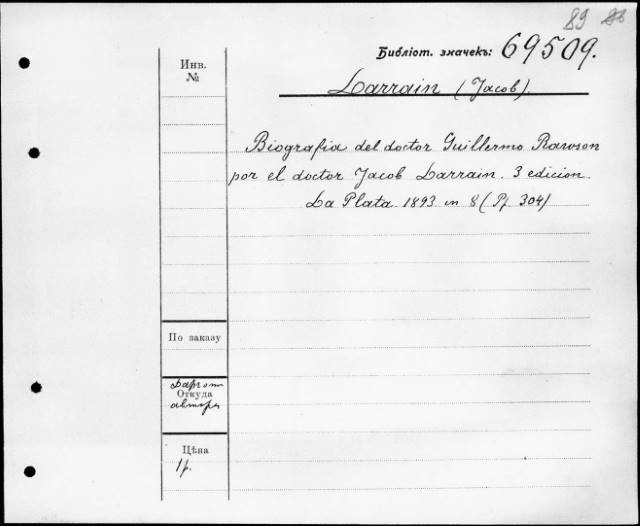 89
Библіот. значекъ: 69509.
Инв.
№
Larrain (Jacob).
Biografia del doctor Guillermo Rawson
por el doctor Jacob Larrain. 3 edicion.
La Plata 1893 in 8 (Pf. 304)
По заказу
Даръ отъ
Откуда
автора
Цѣна
1 р.